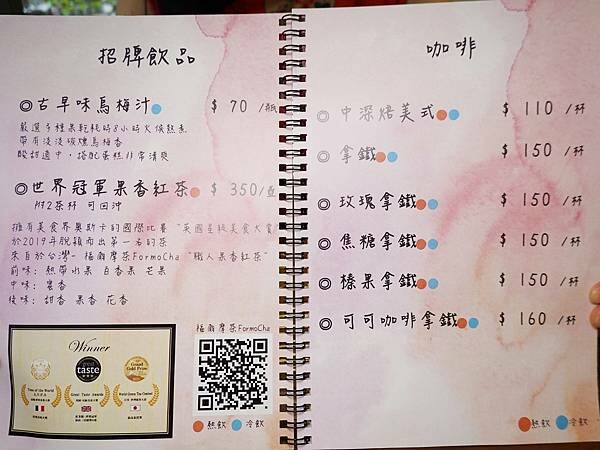 招牌飲品
◎古早味烏梅汁 $ 70 /瓶
嚴選多種果乾耗時8小時文火慢熬煮
帶有淡淡碳燻烏梅香
酸甜適中，搭配蛋糕非常清爽
◎世界冠軍果香紅茶 $ 350/壺
附2茶杯 可回沖
擁有美食界奧斯卡的國際比賽"英國星級美食大賞"
於2019年脫穎而出第一名的茶
來自於台灣-福爾摩茶FormoCha"職人果香紅茶"
前味: 熱帶水果 百香果 芒果
中味: 蜜香
後味: 甜香 果香 花香
Winner
Great Taste Awards
福爾摩茶FormoCha
熱飲 冷飲
咖啡
◎ 中深焙美式 $ 110 /杯
◎ 拿鐵 $ 150 /杯
◎ 玫瑰拿鐵 $ 150 /杯
◎ 焦糖拿鐵 $ 150 /杯
◎ 榛果拿鐵 $ 150 /杯
◎ 可可咖啡拿鐵 $ 160 /杯
熱飲 冷飲